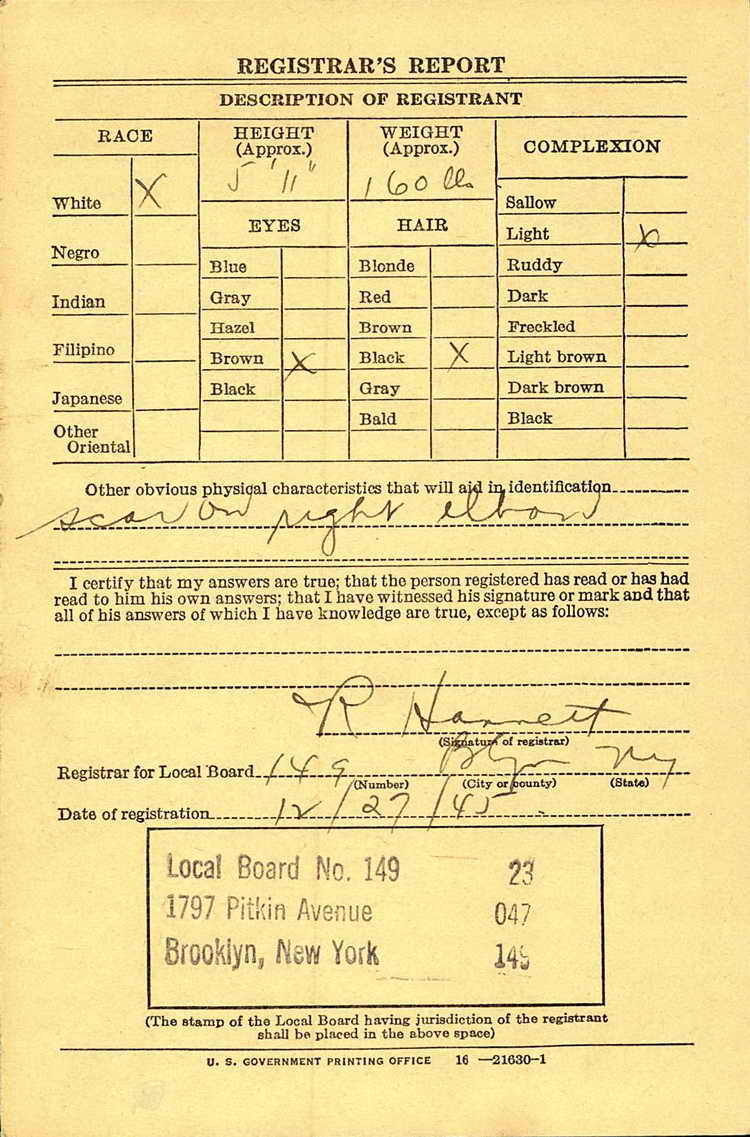 REGISTRAR'S REPORT
DESCRIPTION OF REGISTRANT
RACE
HEIGHT
(Approx.)
5' 11"
WEIGHT
(Approx.)
160 lbs
COMPLEXION
White X
Negro
Indian
Filipino
Japanese
Other
Oriental
EYES
Blue
Gray
Hazel
Brown X
Black
HAIR
Blonde
Red
Brown
Black X
Gray
Bald
Sallow
Light X
Ruddy
Dark
Freckled
Light brown
Dark brown
Black
Other obvious physical characteristics that will aid in identification
scar on right elbow
I certify that my answers are true; that the person registered has read or has had
read to him his own answers; that I have witnessed his signature or mark and that
all of his answers of which I have knowledge are true, except as follows:
R
(Signature of registrar)
Registrar for Local Board 149 Blyn NY
(Number) (City or county) (State)
Date of registration 12/27/45
Local Board No. 149 23
1797 Pitkin Avenue 047
Brooklyn, New York 149
(The stamp of the Local Board having jurisdiction of the registrant
shall be placed in the above space)
U. S. GOVERNMENT PRINTING OFFICE 16—21630-1